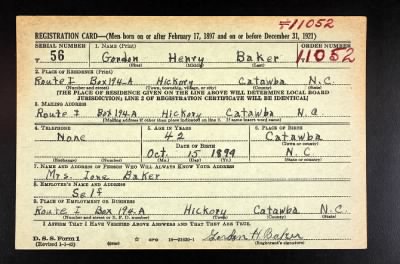 T=11052
REGISTRATION CARD—(Men born on or after February 17, 1897 and on or before December 31, 1921)
SERIAL NUMBER 1. NAME (Print) ORDER NUMBER
T 56 Gordon Henry Baker 11052
(First) (Middle) (Last)
2. PLACE OF RESIDENCE (Print)
Route I Box 194-A Hickory Catawba N.C.
(Number and street) (Town, township, village, or city) (County) (State)
[THE PLACE OF RESIDENCE GIVEN ON THE LINE ABOVE WILL DETERMINE LOCAL BOARD
JURISDICTION; LINE 2 OF REGISTRATION CERTIFICATE WILL BE IDENTICAL]
3. MAILING ADDRESS
Route I Box 194-A Hickory Catawba N.C.
[Mailing address if other than place indicated on line 2. If same insert word same]
4. TELEPHONE 5. AGE IN YEARS 6. PLACE OF BIRTH
None 42 Catawba
DATE OF BIRTH (Town or county)
Oct. 15 1899 N.C
(Exchange) (Number) (Mo.) (Day) (Yr.) (State or country)
7. NAME AND ADDRESS OF PERSON WHO WILL ALWAYS KNOW YOUR ADDRESS
Mrs. Ione Baker
8. EMPLOYER'S NAME AND ADDRESS
Self
9. PLACE OF EMPLOYMENT OR BUSINESS
Route I Box 194-A Hickory Catawba N.C.
(Number and street or R. F. D. number) (Town) (County) (State)
I AFFIRM THAT I HAVE VERIFIED ABOVE ANSWERS AND THAT THEY ARE TRUE.
D. S. S. Form 1
(Revised 1-1-42) (over) GPO 16—21630-1 Gordon H Baker
(Registrant's signature)